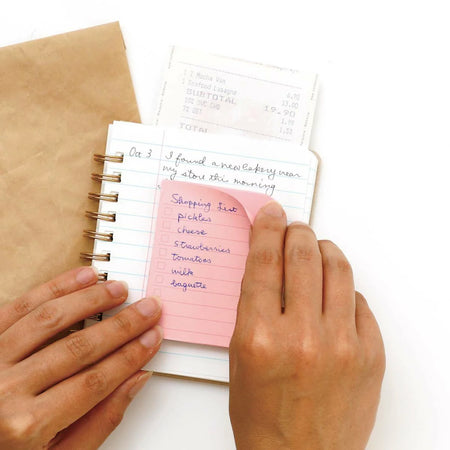 1 Mocha Van 4.90
1 Seafood Lasagna 15.00
SUBTOTAL 19.90
10% SVC CHG 1.99
7% GST 1.53
TOTAL
Oct 3 I found a new bakery near
my store this morning
Shopping List
pickles
cheese
strawberries
tomatoes
milk
baguette